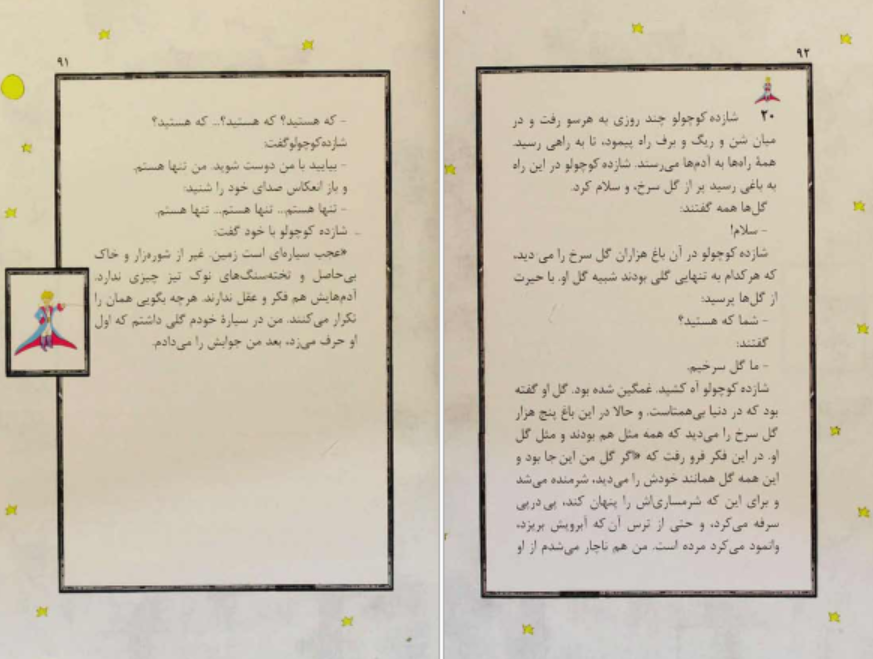 ۹۱
- که هستید؟ که هستید؟... که هستید؟
شازده‌کوچولو‌گفت:
- بیایید با من دوست شوید. من تنها هستم.
و باز انعکاس صدای خود را شنید:
- تنها هستم... تنها هستم... تنها هستم.
شازده کوچولو با خود گفت:
«عجب سیاره‌ای است زمین. غیر از شوره‌زار و خاک
بی‌حاصل و تخته‌سنگ‌های نوک تیز چیزی ندارد.
آدم‌هایش هم فکر و عقل ندارند. هرچه بگویی همان را
تکرار می‌کنند. من در سیارهٔ خودم گلی داشتم که اول
او حرف می‌زد، بعد من جوابش را می‌دادم.
۹۲
۲۰ شازده کوچولو چند روزی به هرسو رفت و در
میان شن و ریگ و برف راه پیمود، تا به راهی رسید.
همهٔ راه‌ها به آدم‌ها می‌رسند. شازده کوچولو در این راه
به باغی رسید پر از گل سرخ، و سلام کرد.
گل‌ها همه گفتند:
- سلام!
شازده کوچولو در آن باغ هزاران گل سرخ را می‌دید،
که هرکدام به تنهایی گلی بودند شبیه گل او. با حیرت
از گل‌ها پرسید:
- شما که هستید؟
گفتند:
- ما گل سرخیم.
شازده کوچولو آه کشید. غمگین شده بود. گل او گفته
بود که در دنیا بی‌همتاست. و حالا در این باغ پنج هزار
گل سرخ را می‌دید که همه مثل هم بودند و مثل گل
او. در این فکر فرو رفت که «اگر گل من این جا بود و
این همه گل همانند خودش را می‌دید، شرمنده می‌شد
و برای این که شرمساری‌اش را پنهان کند، پی‌درپی
سرفه می‌کرد، و حتی از ترس آن که آبرویش بریزد،
وانمود می‌کرد مرده است. من هم ناچار می‌شدم از او